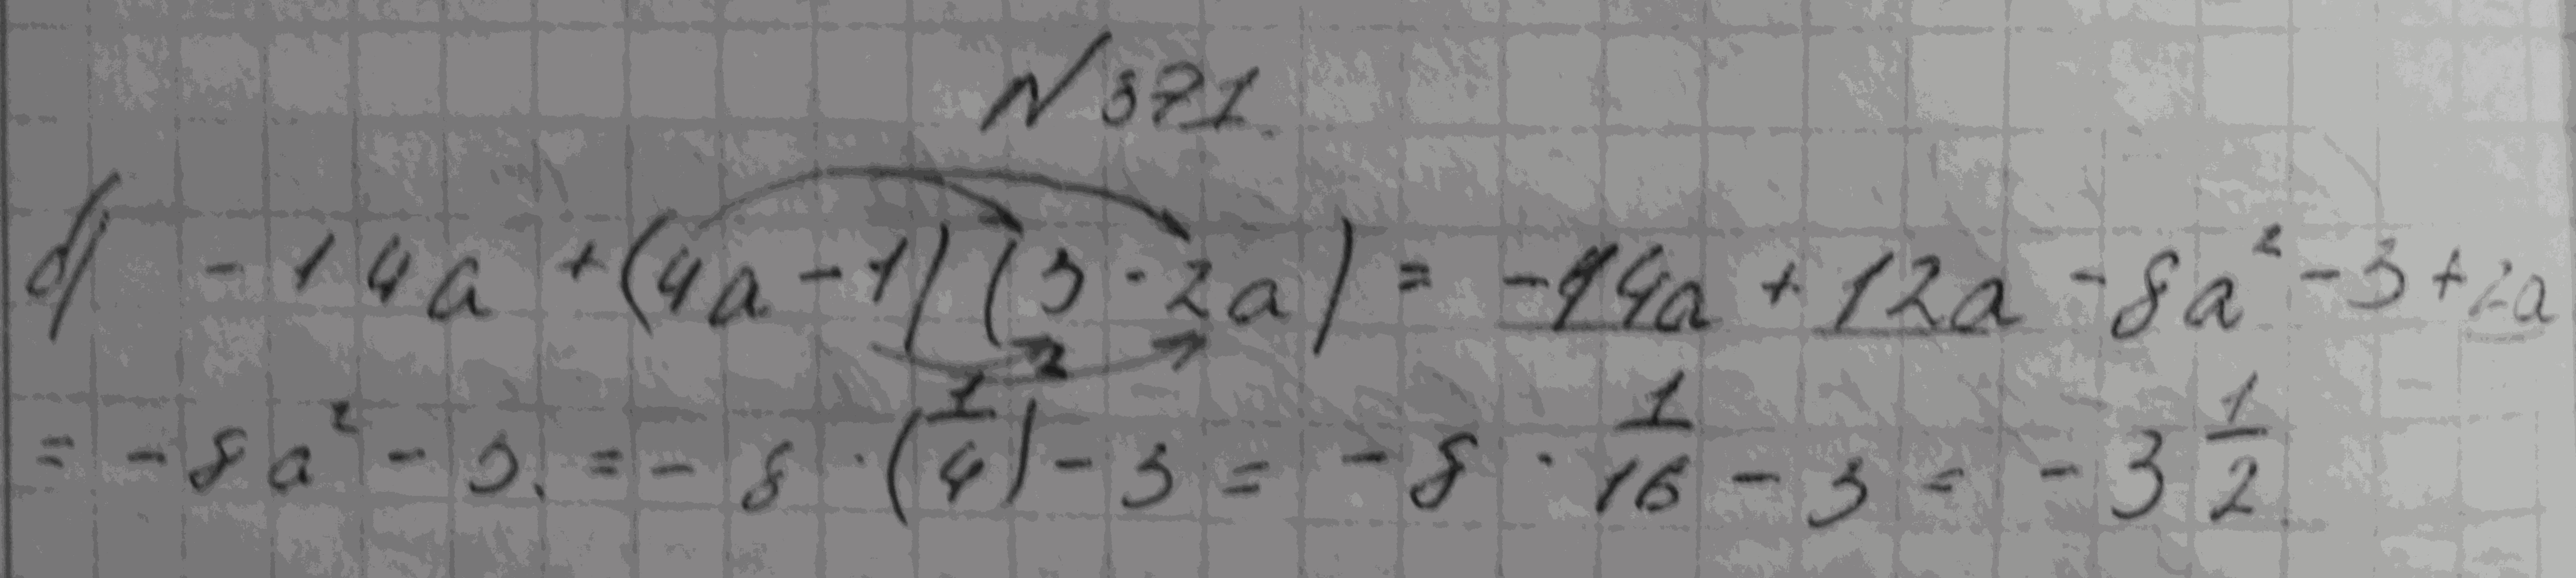 № 371.
б) - 14a + (4a - 1)(3 - 2a) = -14a + 12a - 8a² - 3 + 2a
= - 8a² - 3. = - 8 · (1/4)² - 3 = - 8 · 1/16 - 3 = - 3 1/2